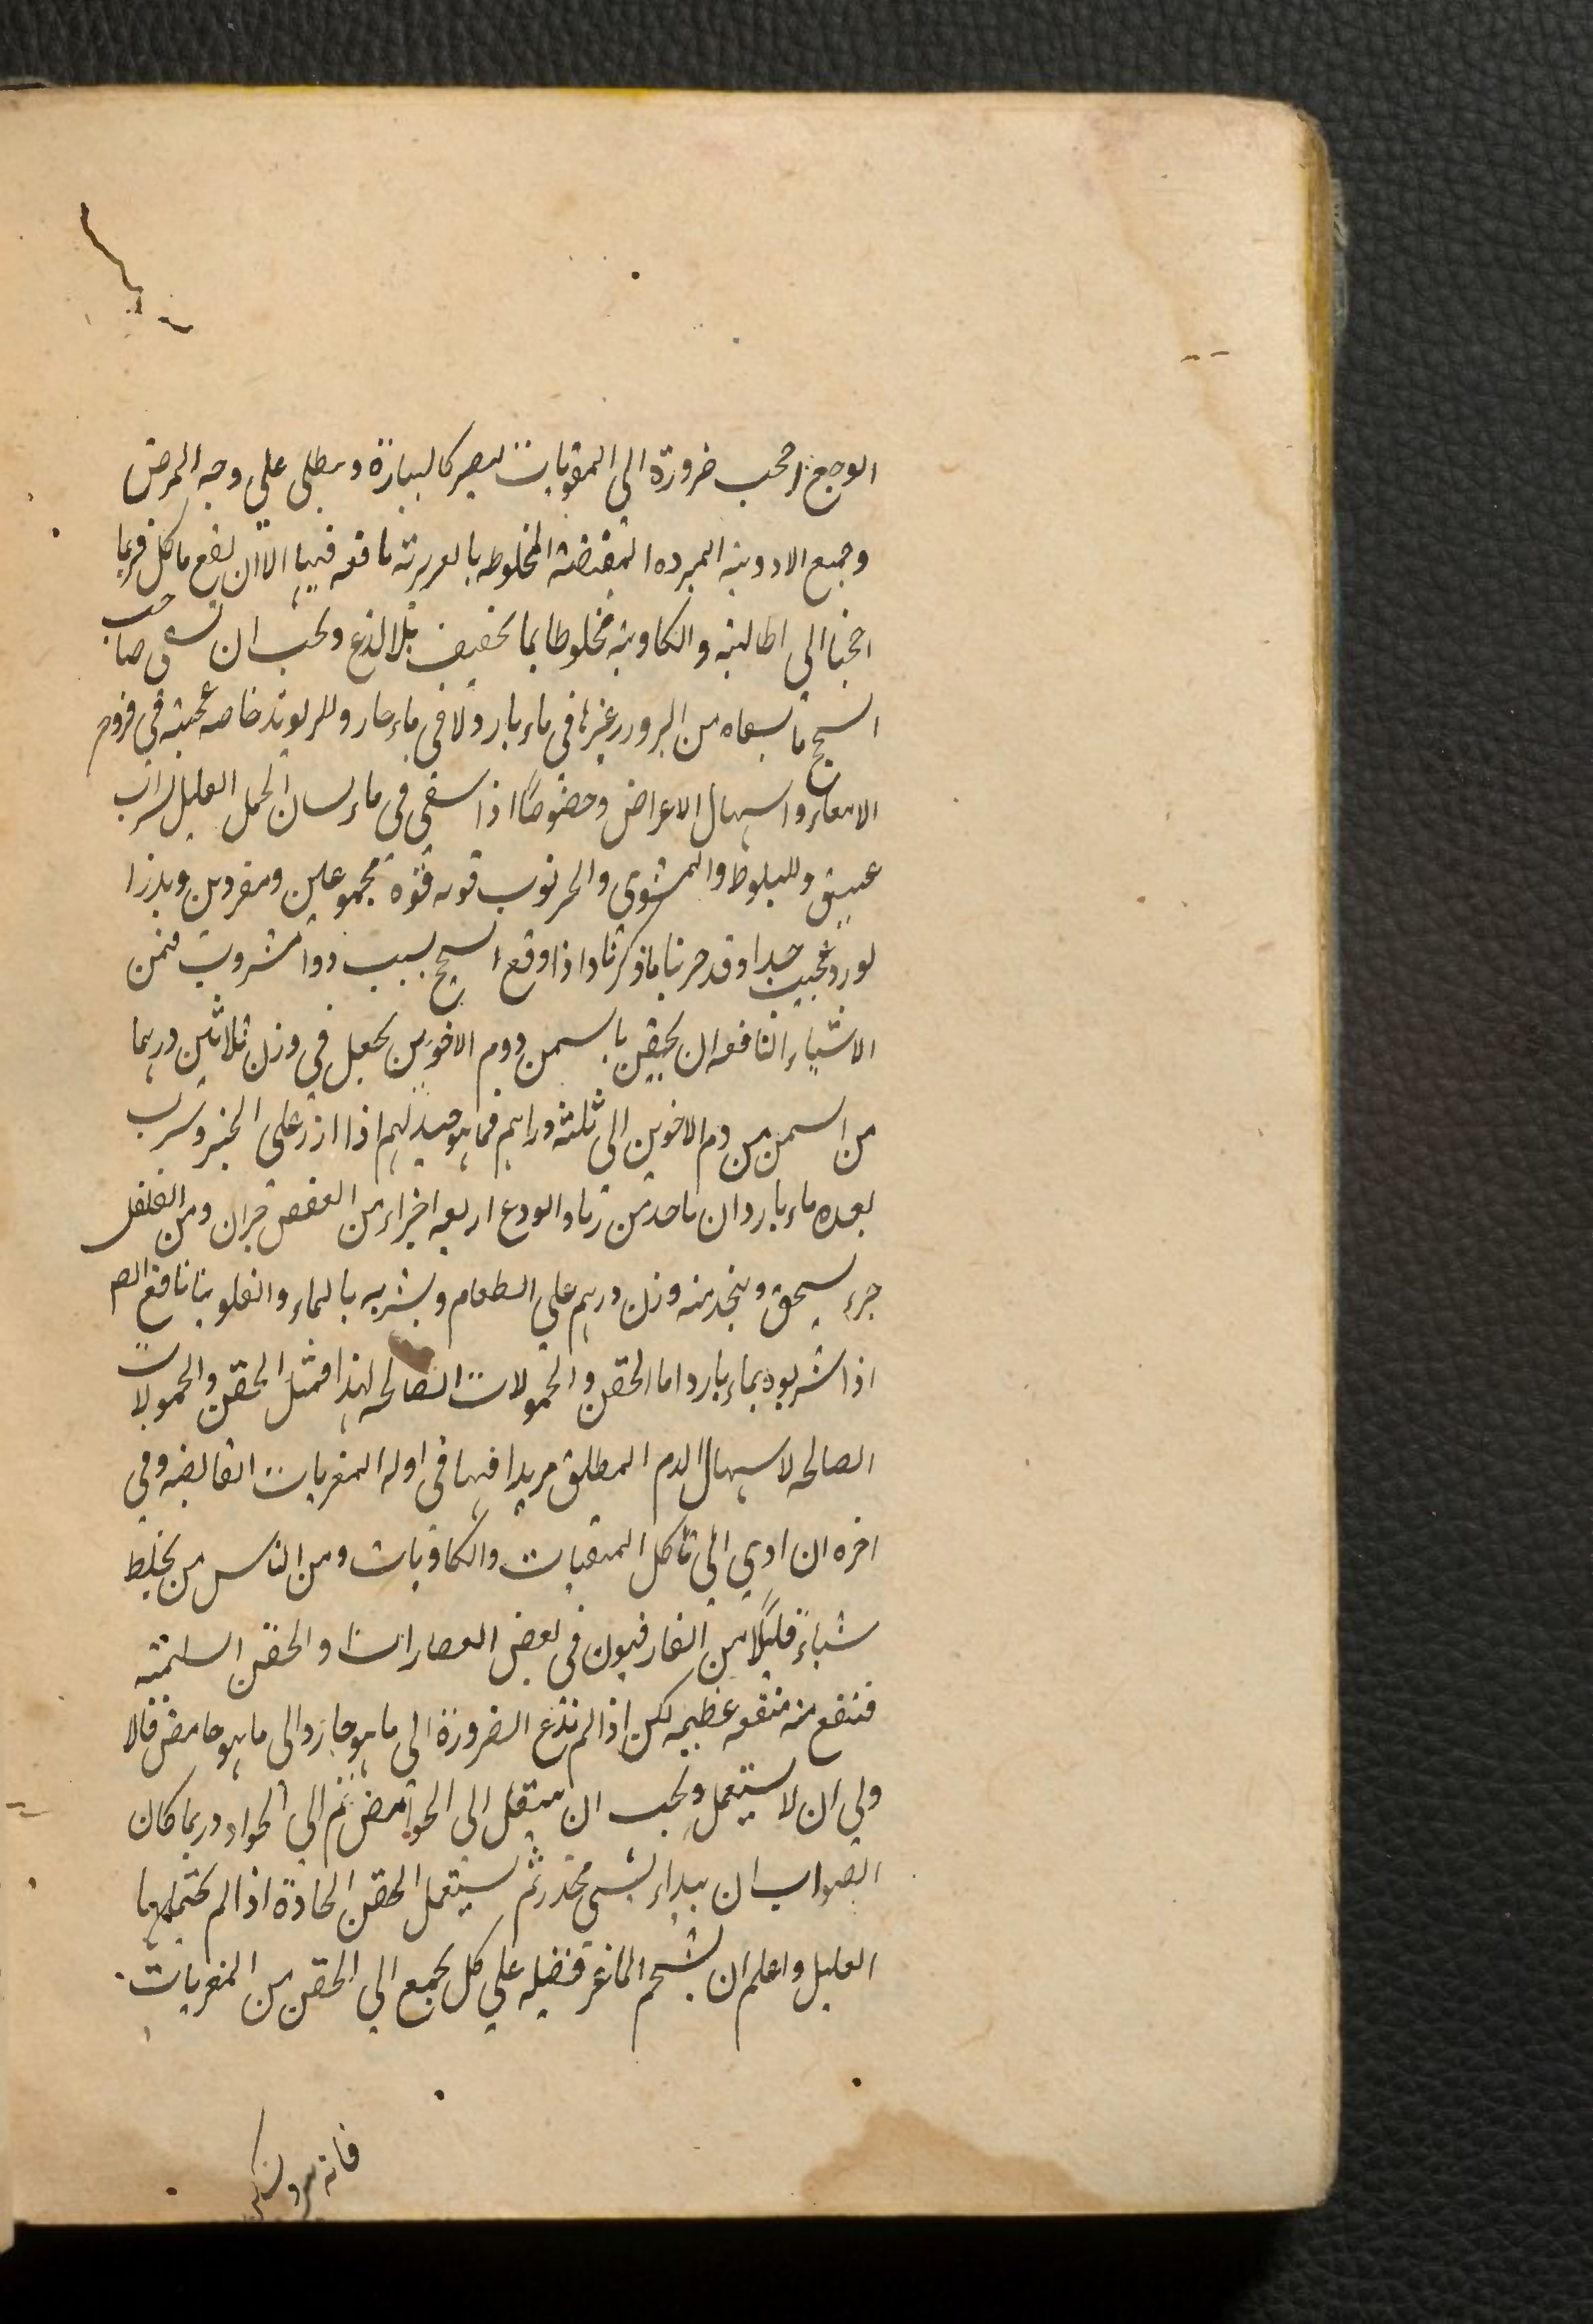 الوجع احب ضرورة الى المقويات ليصير كالبيارة ويطلى على وجه المرض
وجميع الادوية المبردة المقبضة المخلوطه بالغريزية نافعه فيها الا ان يقع ماكل فربما
احجنا الى اطالية والكاوية مخلوطا بما تخفيف بلا لذع ويحب ان يسقى صاحب
السحج ما يسقاه من البزور وغيرها فى ماء بارد ولا فى ماء حار وللريوند خاصه عجيبة فى قروح
الامعاء واسهال الاعراض وخصوصًا اذا سقى فى ماء لسان الحمل القليل بشراب
عتيق وللبلوط والمشوى والخرنوب قوه قوة مجموعين ومفردين وبذرا
لورد عجيب جدا وقد جربنا ما ذكرنا واذا وقع السحج بسبب دوا مشروب فمن
الاشياء النافعه ان يحقن باسمن ودم الاخوين يجعل فى وزن ثلاثين درهما
من السمن من دم الاخوين الى ثلثة دراهم فما هو جيد لهم اذا ازر على الخبز وشرب
بعده ماء بارد ان ياخذ من رماد الودع اربعه اجزاء من العفص جزان ومن الفلفل
جزء يسحق ويتخذ منه وزن درهم على الطعام ويشربه بالماء والفلونيا نافع الهم
اذا شربوه بماء بارد اما الحقن والحمولات الصالحه لهذا فمثل الحقن والحمولات
الصالحه لاسهال الدم المطلق مريدا فيها فى اوله المغريات القابضه وفى
اخره ان ادى الى تاكل المنقيات والكاويات ومن الناس من يخلط
شياء قليلًا من الفارفيون فى بعض العصارات والحقن السلمته
فنفع منه منفعه عظيمه لكن اذا لم تدع الضرورة الى ما هو حار والى ما هو حامض فالا
ولى ان لا يستعمل ويجب ان ينتقل الى الحوامض ثم الى الحواد وربما كان
الصواب ان يبداء بشى مخدر ثم يستعمل الحقن الحادة اذا لم يحتملها
العليل واعلم ان شحم الماعز فضيله على كل يجمع الى الحقن من المغريات
فانه يبرد